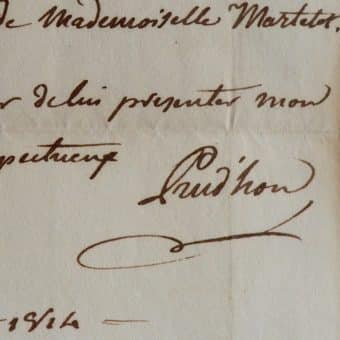 de Mademoiselle Martelot.
r de lui presenter mon
pectueux
Prud'hon
1814 —